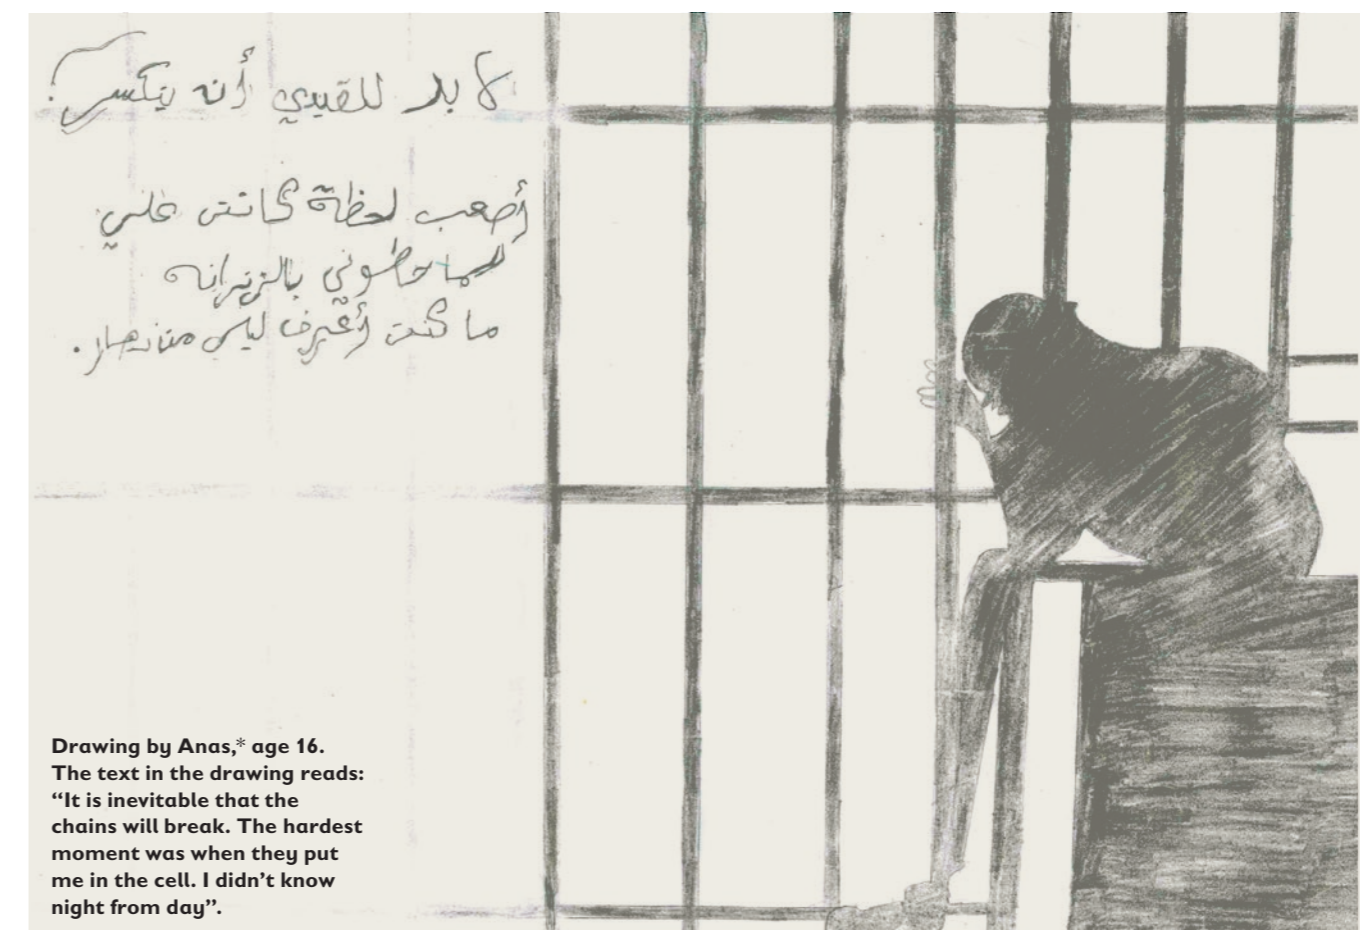 لا بد للقيدي أن ينكسر!
أصعب لحظة كانت علي
لما حطوني بالزنزانه
ما كنت أعرف ليلي من نهار.
Drawing by Anas,* age 16.
The text in the drawing reads:
“It is inevitable that the
chains will break. The hardest
moment was when they put
me in the cell. I didn’t know
night from day”.